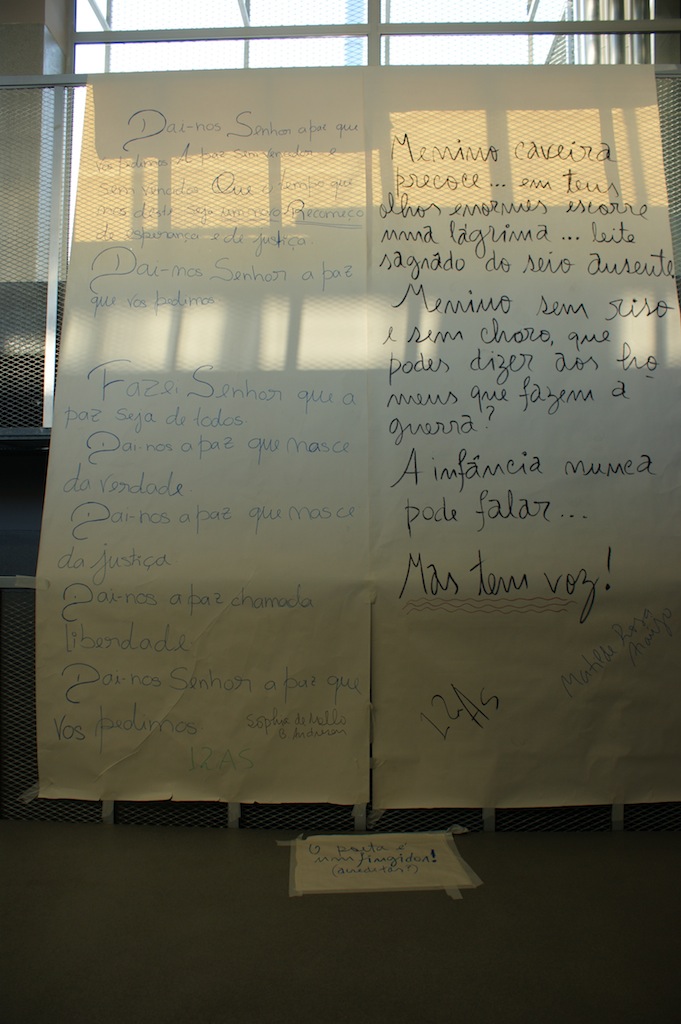 Dai-nos Senhor a paz que
vos pedimos A paz sem vencedor e
sem vencidos Que o tempo que
nos deste seja um novo Recomeço
de esperança e de justiça.
Dai-nos Senhor a paz
que vos pedimos
Fazei Senhor que a
paz seja de todos.
Dai-nos a paz que nasce
da verdade
Dai-nos a paz que nasce
da justiça
Dai-nos a paz chamada
liberdade
Dai-nos Senhor a paz que
vos pedimos
Sophia de Mello
B. Andresen
12AS
Menino caveira
precoce... em teus
olhos enormes escorre
uma lágrima... leite
sagrado do seio ausente
Menino sem riso
e sem choro, que
podes dizer aos ho
mens que fazem a
guerra?
A infância nunca
pode falar...
Mas tem voz!
Matilde Rosa
Araújo
12AS
O poeta é
um fingidor!
(acreditas?)